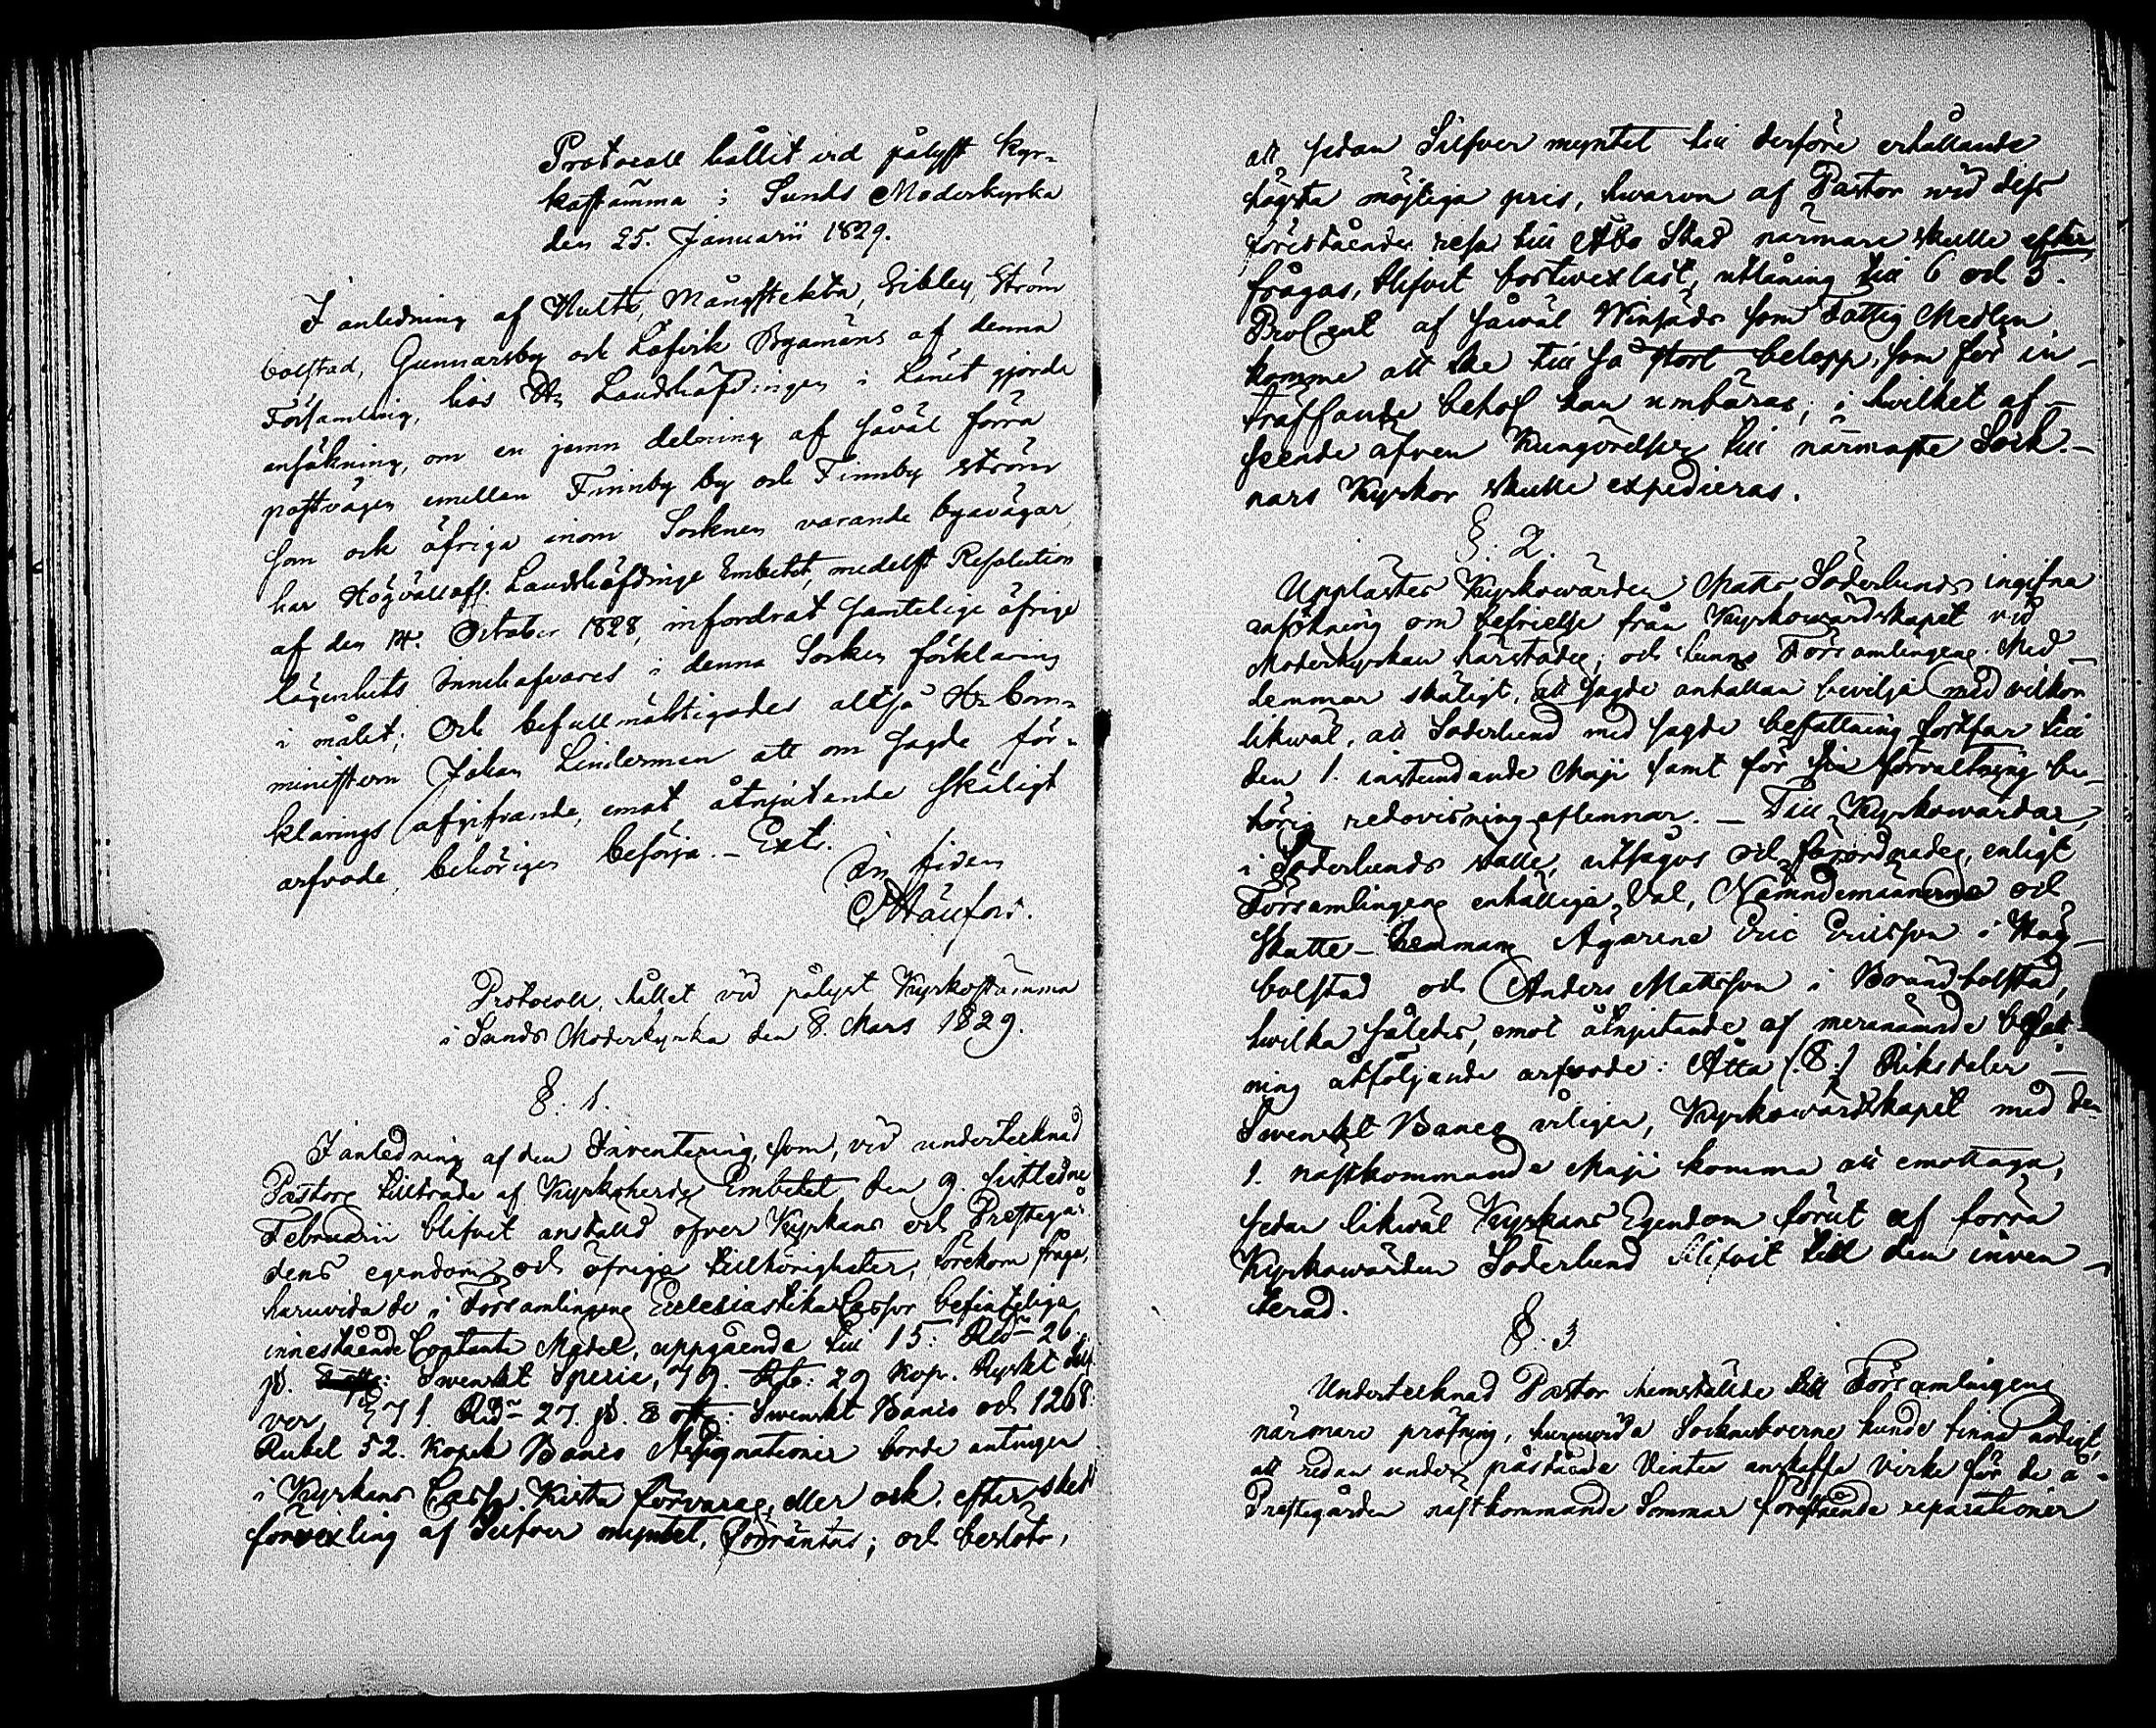 Protocoll hållit vid pålyst Kyr-
kostämma i Sunds Moderkyrka
den 25. Januarii 1829.
I anledning af Hulta, Mångstekta, Gibley, Ström
bolstad, Gunnarsby och Löfvik Byamäns af denna
Församling, hos Hr Landshöfdingen i Länet gjorde
ansökning, om en jemn delning af såväl förra
postvägen emellan Finnby by och Finnby ström
som ock öfriga inom Socknen varande byavägar,
har Högvällofl. Landshöfdinge Embetet, medelst Resolution
af den 14. October 1828, infordrat samtelige öfrige
lägenhets Innehafvares i denna Socken förklaring
i målet; Och befullmäktigades altså Hr Com-
ministern Johan Linderman att om sagde för-
klarings afgifvande, emot åtnjutande skäligt
arfvode behörigen besörja. – Ext.
In fidem
Protocoll, hållet vid pålyst Kyrkostämma
i Sunds Moderkyrka den 8. Mars 1829.
§. 1.
I anledning af den Inventering, som, vid undertecknad
Pastors tillträde af Kyrkoherde Embetet den 9. sistledne
Februarii blifvit anstäld öfver Kyrkans och Prestegår
dens egendom och öfriga tillhörigheter, förekom fråga,
huruvida de i Församlingens Ecclesiastika Cassor befinteliga
innestående Contanta Medel, uppgående till 15: Rd 26.
sk. Swenskt Specie, 79. Rb: 29 Kop. Ryskt Silf
ver, 271. Rd 27. sk. 8 Swenskt Banco och 1268:
Rubel 52. Kopek Banco Assignationer borde antingen
i Kyrkans Cassa Kista förvaras, eller ock, efter sked
förvexling af Silfver myntet, förräntas; och beslöts,
att sedan Silfver myntet till derföre erhållande
högsta möjliga pris, hvarom af Pastor wid dess
förestående resa till Åbo Stad närmare skulle efter
frågas, blifvit bortvexlast, utlåning till 6 och 5.
ProCent af såwäl Winsads som Fattig Medlen,
komme att ske till så stort belopp, som för in-
träffande behof kan umbäras; i hvilket af-
seende äfven Kungörelser till närmaste Sock-
nars Kyrkor skulle expedieras.
§. 2.
Upplästes Kyrkowärden Matts Söderlunds ingifna
ansökning om befrielse från Kyrkowärdskapet vid
Moderkyrkan härstädes; och funno Församlingens Med-
lemmar skäligt, att sagde anhållan bevilja med vilkor
likwäl, att Söderlund med sagde befattning fortfar till
den 1. instundande Maji samt för sin förvaltning be-
hörig redovisning aflemnar. – Till Kyrkowärdar,
i Söderlunds ställe, utsågos och förordnades, enligt
Församlingens enhälliga Val, Nämndemännerne och
Skatte-hemmans Ägarene Eric Ericsson i Hög-
bolstad och Anders Mattsson i Brändbolstad,
hvilka således, emot åtnjutande af meranämnde befatt-
ning åtföljande arfvode: Åtta (8:) Riksdaler –
Swenskt Banco årligen, Kyrkowärdskapet med den
1. nästkommande Maji komma att emottaga,
sedan likwäl Kyrkans Egendom förut af förra
Kyrkowärden Söderlund blifvit till dem inven-
terad.
§. 3.
Undertecknad Pastor hemstälde till Församlingens
närmare pröfning, huruvida Sockneboerne kunde finna nödigt,
att redan under påstående Vinter anskaffa virke för de å
Prestegården nästkommande Sommar förestående reparationer